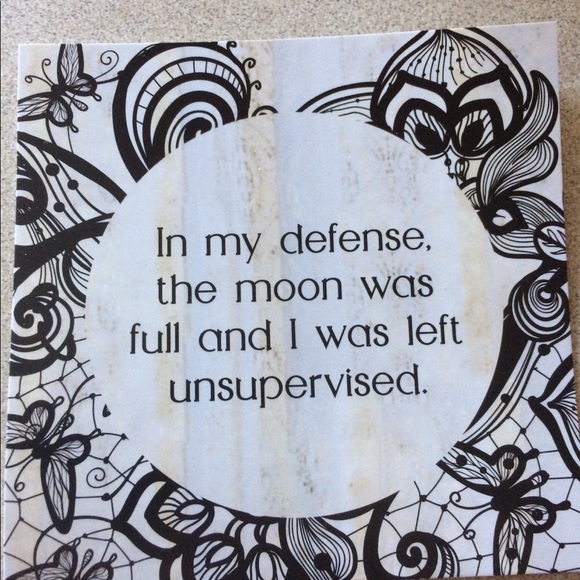 In my defense,
the moon was
full and I was left
unsupervised.